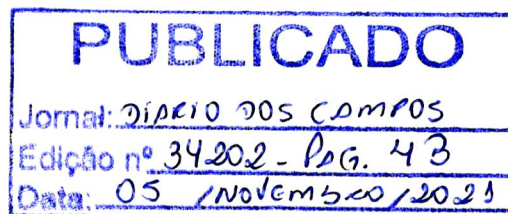 PUBLICADO
Jornal: DIÁRIO DOS CAMPOS
Edição nº 34202 - PÁG. 4B
Data: 05 / NOVEMBRO / 2021